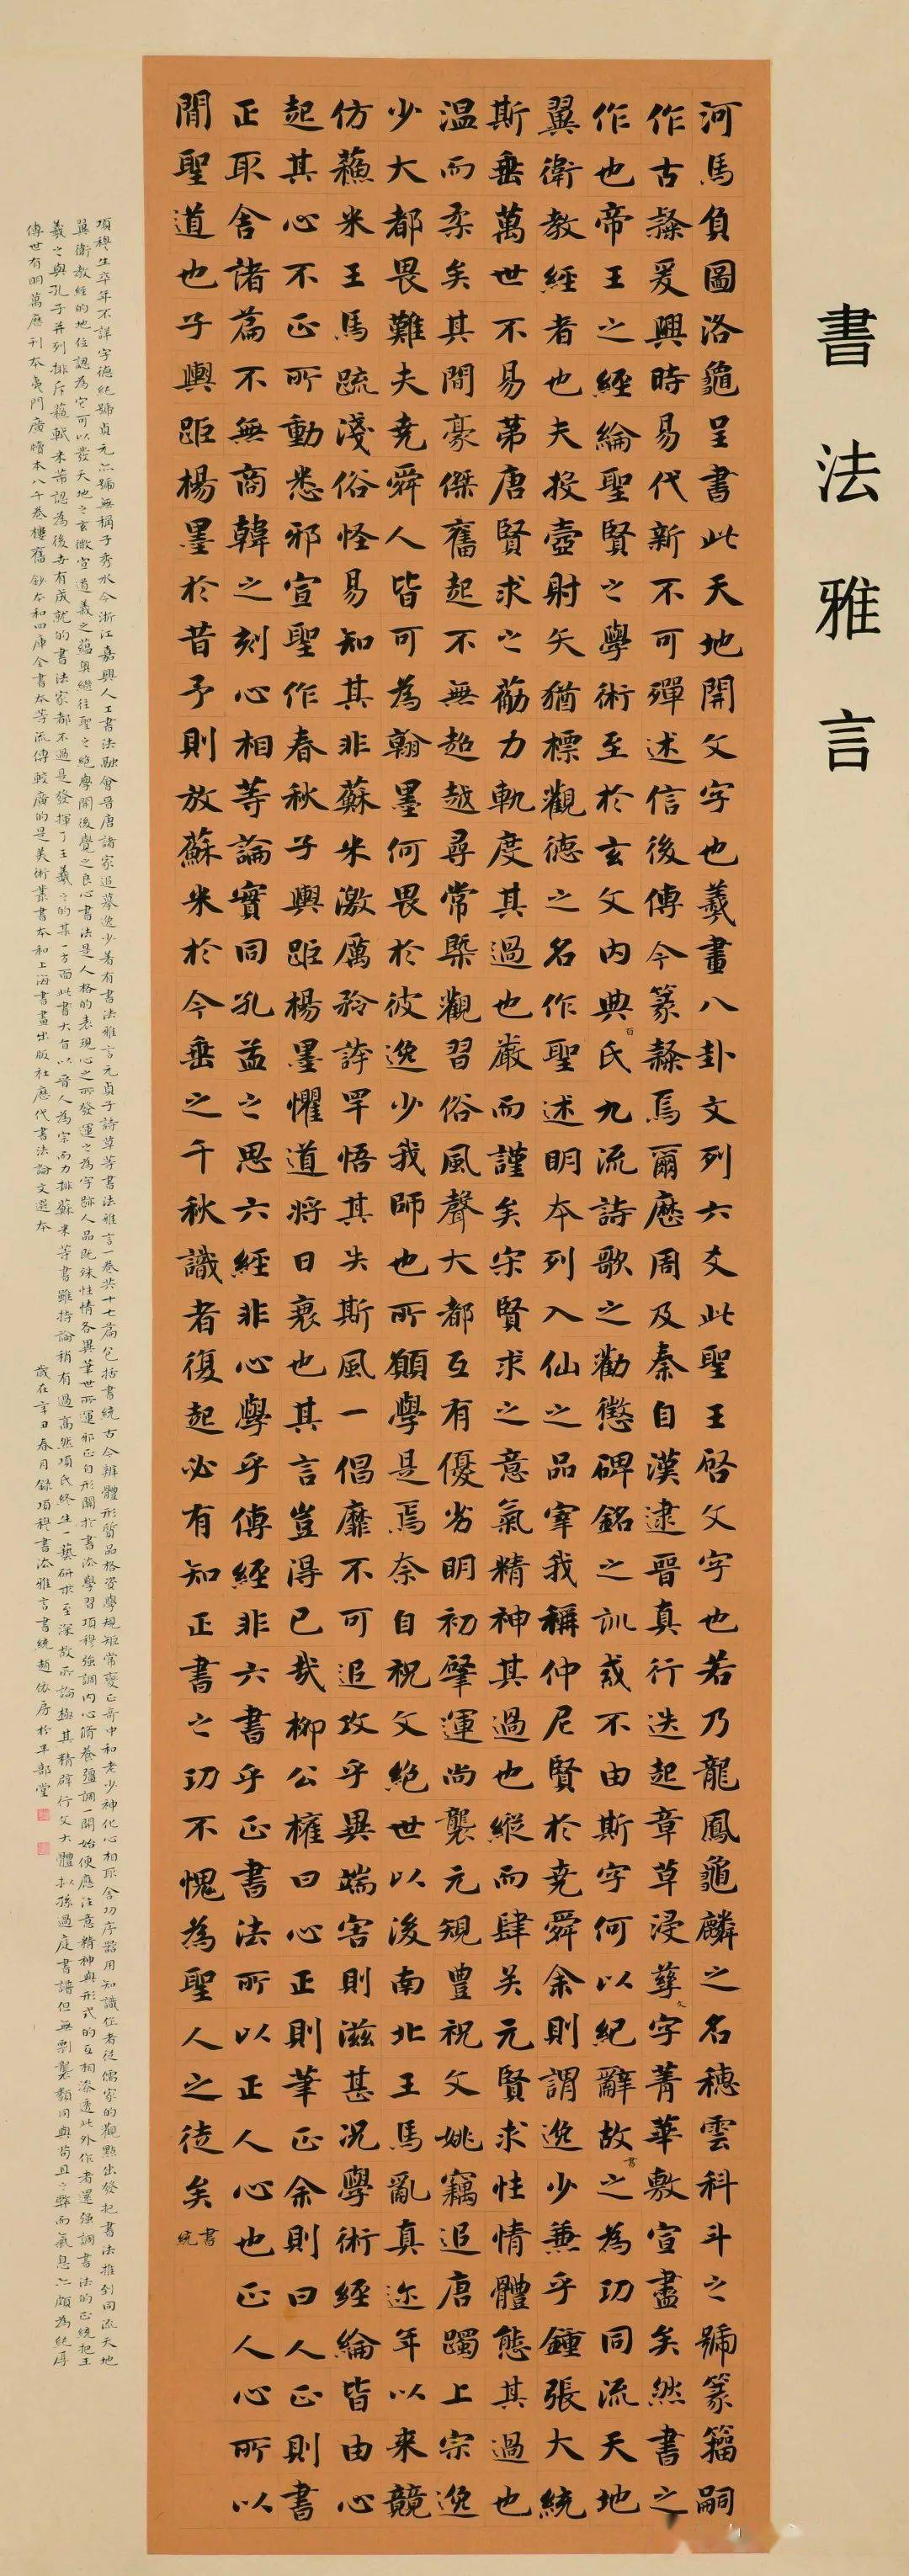 書法雅言
河馬負圖洛龜呈書此天地開文字也羲畫八卦文列六爻此聖王啓文字也若乃龍鳳龜麟之名穗雲科斗之號篆籀嗣
作古隸爰興時易代新不可殫述信後傳今篆隸焉爾歷周及秦自漢逮晉真行迭起章草浸孳文字菁華敷宣盡矣然書之
作也帝王之經綸聖賢之學術至於玄文內典百氏九流詩歌之勸懲碑銘之訓戒不由斯字何以紀辭故書之為功同流天地
翼衛教經者也夫投壺射矢猶標觀德之名作聖述明本列入仙之品宰我稱仲尼賢於堯舜余則謂逸少兼乎鍾張大統
斯垂萬世不易第唐賢求之勸力軌度其過也嚴而謹矣宋賢求之意氣精神其過也縱而肆矣元賢求性情體態其過也
溫而柔矣其間豪傑奮起不無超越尋常槩觀習俗風聲大都互有優劣明初肇運尚襲元規豊祝文姚竊追唐躅上宗逸
少大都畏難夫堯舜人皆可為翰墨何畏於彼逸少我師也所願學是焉奈自祝文絕世以後南北王馬亂真迩年以來競
仿蘓米王馬疏淺俗怪易知其非蘇米激厲矜誇罕悟其失斯風一倡靡不可追攻乎異端害則滋甚況學術經綸皆由心
起其心不正所動悉邪宣聖作春秋子輿距楊墨懼道將日衰也其言豈得已哉柳公權曰心正則筆正余則曰人正則書
正取舍諸篇不無商韓之刻心相等論實同孔孟之思六經非心學乎傳經非六書乎正書法所以正人心也正人心所以
閒聖道也子輿距楊墨於昔予則放蘇米於今垂之千秋識者復起必有知正書之功不愧為聖人之徒矣 書統
項穆生卒年不詳字德純號貞元亦號無稱子秀水今浙江嘉興人工書法融會晉唐諸家追摹逸少著有書法雅言元貞子詩草等書法雅言一卷共十七篇包括書統古今辨體形質品格資學規矩常變正奇中和老少神化心相取舍功序器用知識任者從儒家的觀點出發把書法推到同流天地
翼衛教經的地位認為它可以發天地之玄微宣道義之蘊奧繼往聖之絕學開後覺之良心書法是人格的表現心之所發運之為字跡人品既殊性情各異筆世所運邪正自形關於書法學習項穆強調內心脩養強調一開始便應注意精神與形式的互相滲透此外作者還強調書法的正統把王
羲之與孔子并列排斥蘓軾米芾認為後世有成就的書法家都不過是發揮了王羲之的某一方面此書大旨以晉人為宗而力排蘇米等書雖持論稍有過高然項氏終生一藝研求至深故所論極其精辟行文大體擬孫過庭書譜但無剽襲類同與苟且之弊而氣息亦頗為純厚
傳世有明萬歷刊本夷門廣牘本八千卷樓舊鈔本和四庫全書本等流傳較廣的是美術叢書本和上海書畫出版社歷代書法論文選本
歲在辛丑春月錄項穆書法雅言書統趙依房於